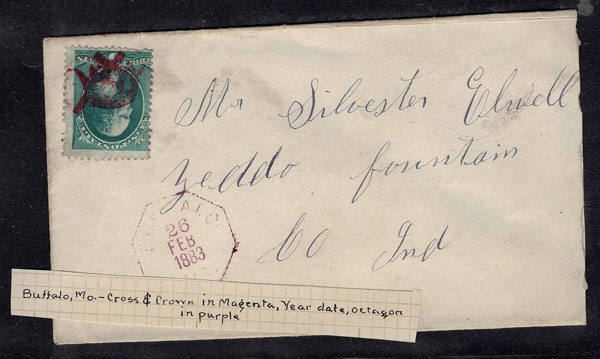 Mr Silvester Elwell
Yeddo fountain
Co Ind
BUFFALO
26
FEB
1883
Buffalo, Mo.-Cross & Crown in Magenta, Year date, octagon
in purple